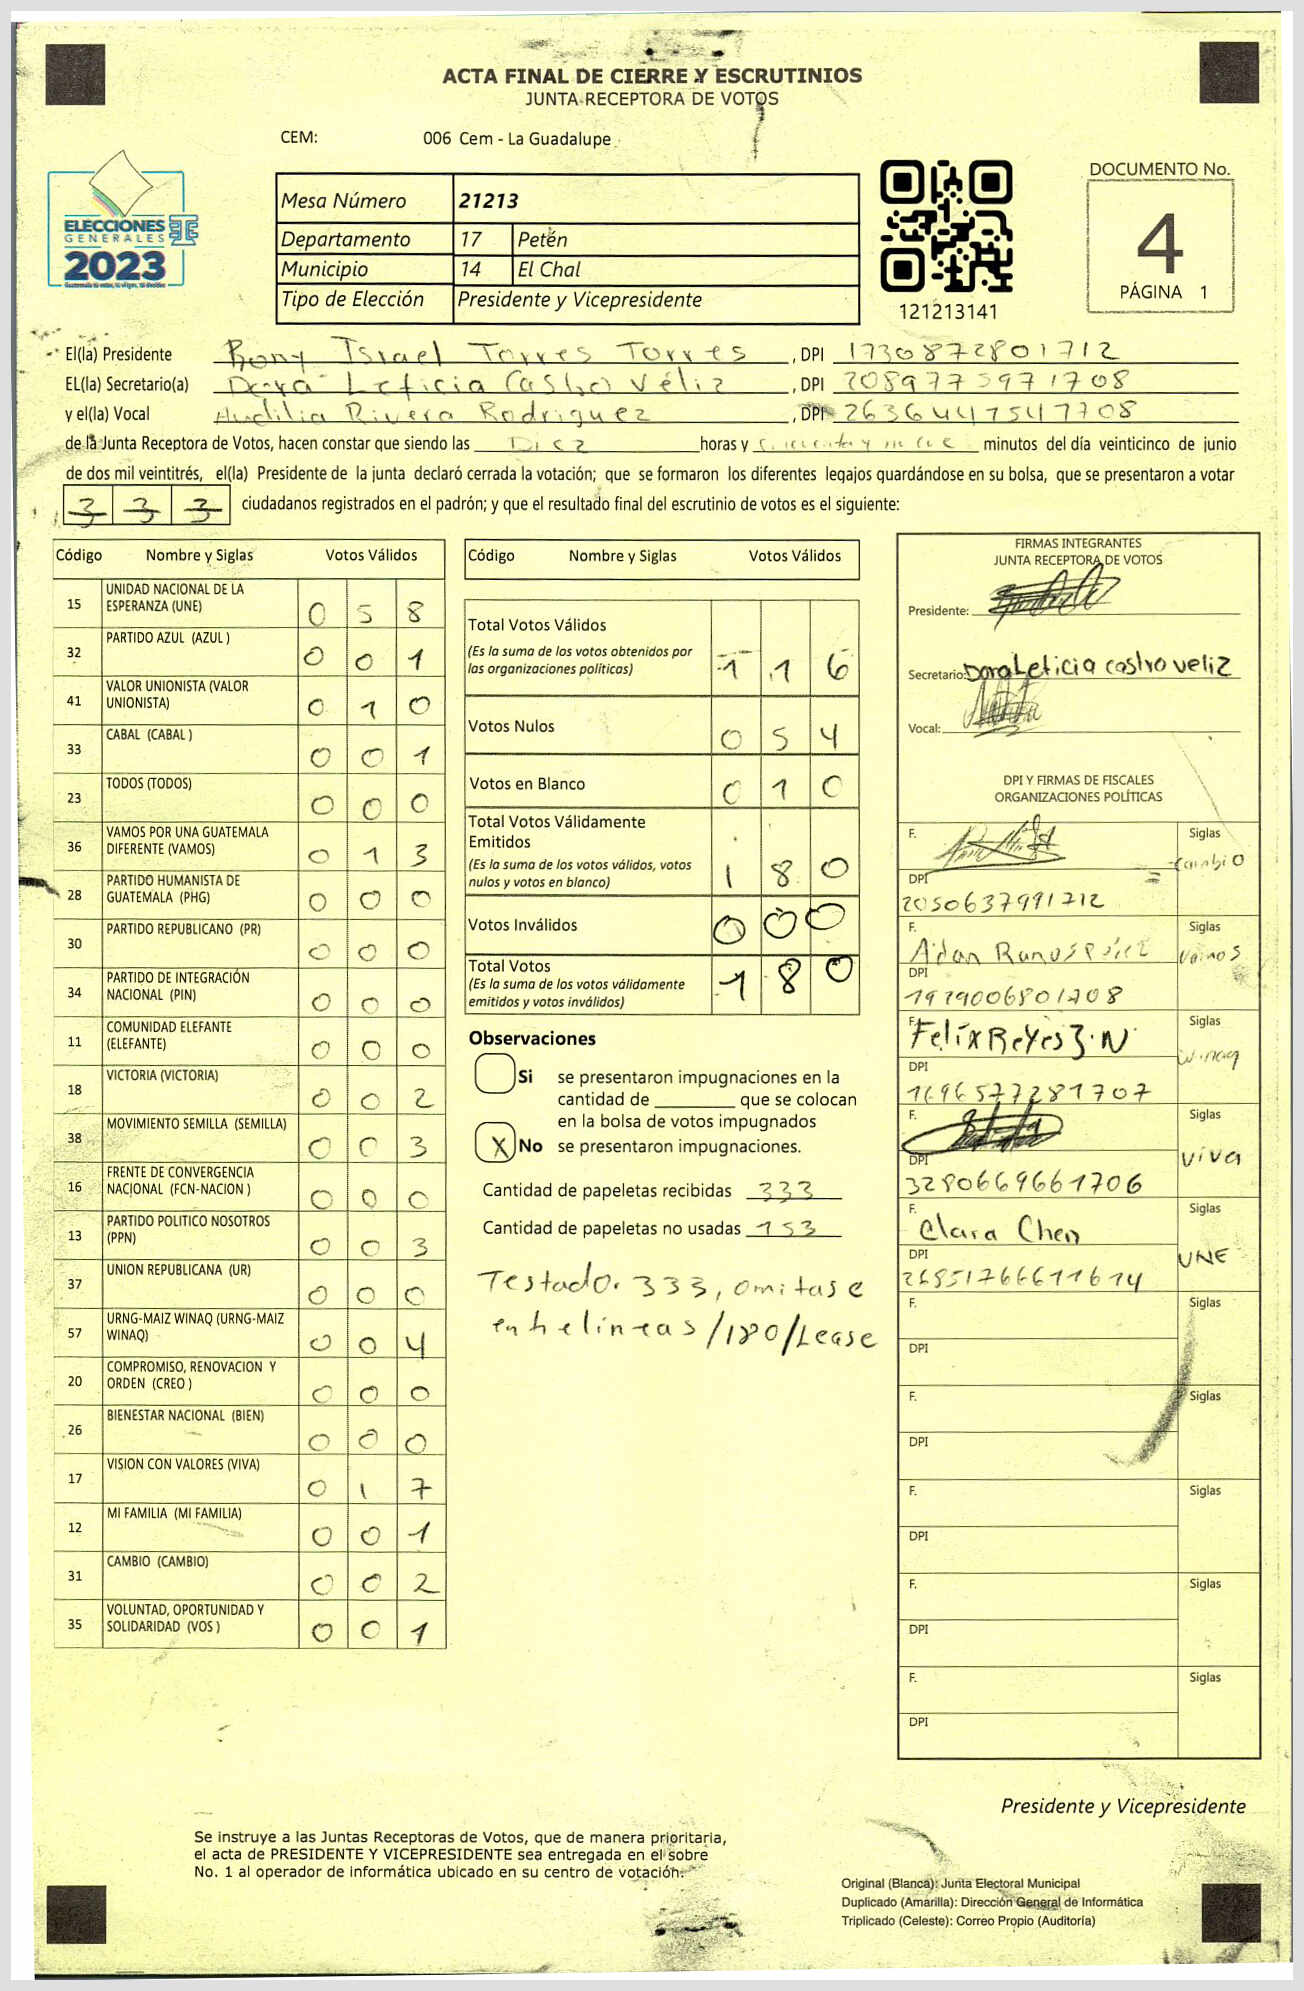 ACTA FINAL DE CIERRE Y ESCRUTINIOS
JUNTA RECEPTORA DE VOTOS
CEM: 006 Cem - La Guadalupe
ELECCIONES
GENERALES
2023
Mesa Número 21213
Departamento 17 Petén
Municipio 14 El Chal
Tipo de Elección Presidente y Vicepresidente
121213141
DOCUMENTO No.
4
PÁGINA 1
El(la) Presidente Rony Israel Torres Torres, DPI 1730872801712
EL(la) Secretario(a) Dora Leticia Castro Véliz, DPI 2089775971708
y el(la) Vocal Audilia Rivera Rodriguez, DPI 2636447547708
de la Junta Receptora de Votos, hacen constar que siendo las Diez horas y cincuenta y nueve minutos del día veinticinco de junio
de dos mil veintitrés, el(la) Presidente de la junta declaró cerrada la votación; que se formaron los diferentes legajos guardándose en su bolsa, que se presentaron a votar
3 3 3 ciudadanos registrados en el padrón; y que el resultado final del escrutinio de votos es el siguiente:
Código Nombre y Siglas Votos Válidos
15 UNIDAD NACIONAL DE LA ESPERANZA (UNE) 0 5 8
32 PARTIDO AZUL (AZUL ) 0 0 1
41 VALOR UNIONISTA (VALOR UNIONISTA) 0 1 0
33 CABAL (CABAL ) 0 0 1
23 TODOS (TODOS) 0 0 0
36 VAMOS POR UNA GUATEMALA DIFERENTE (VAMOS) 0 1 3
28 PARTIDO HUMANISTA DE GUATEMALA (PHG) 0 0 0
30 PARTIDO REPUBLICANO (PR) 0 0 0
34 PARTIDO DE INTEGRACIÓN NACIONAL (PIN) 0 0 0
11 COMUNIDAD ELEFANTE (ELEFANTE) 0 0 0
18 VICTORIA (VICTORIA) 0 0 2
38 MOVIMIENTO SEMILLA (SEMILLA) 0 0 3
16 FRENTE DE CONVERGENCIA NACIONAL (FCN-NACION ) 0 0 0
13 PARTIDO POLITICO NOSOTROS (PPN) 0 0 3
37 UNION REPUBLICANA (UR) 0 0 0
57 URNG-MAIZ WINAQ (URNG-MAIZ WINAQ) 0 0 4
20 COMPROMISO, RENOVACION Y ORDEN (CREO ) 0 0 0
26 BIENESTAR NACIONAL (BIEN) 0 0 0
17 VISION CON VALORES (VIVA) 0 1 7
12 MI FAMILIA (MI FAMILIA) 0 0 1
31 CAMBIO (CAMBIO) 0 0 2
35 VOLUNTAD, OPORTUNIDAD Y SOLIDARIDAD (VOS ) 0 0 1
Código Nombre y Siglas Votos Válidos
Total Votos Válidos 1 1 6
(Es la suma de los votos obtenidos por
las organizaciones políticas)
Votos Nulos 0 5 4
Votos en Blanco 0 1 0
Total Votos Válidamente
Emitidos 1 8 0
(Es la suma de los votos válidos, votos
nulos y votos en blanco)
Votos Inválidos 0 0 0
Total Votos 1 8 0
(Es la suma de los votos válidamente
emitidos y votos inválidos)
Observaciones
Si se presentaron impugnaciones en la
cantidad de ________ que se colocan
en la bolsa de votos impugnados
X No se presentaron impugnaciones.
Cantidad de papeletas recibidas 333
Cantidad de papeletas no usadas 153
Testado. 333, omitase
entrelineas /180/Lease
FIRMAS INTEGRANTES
JUNTA RECEPTORA DE VOTOS
Presidente:
Secretario: Dora Leticia castro veliz
Vocal:
DPI Y FIRMAS DE FISCALES
ORGANIZACIONES POLÍTICAS
F. Siglas
cambio
DPI
2050637991712
F. Adan Ramos Siglas
Vamos
DPI
1979006801708
F. Felix Reyes Siglas
winaq
DPI
1696577281707
F. Siglas
viva
DPI
3280669661706
F. Clara Chen Siglas
UNE
DPI
26851766611614
F. Siglas
DPI
F. Siglas
DPI
F. Siglas
DPI
F. Siglas
DPI
F. Siglas
DPI
Presidente y Vicepresidente
Se instruye a las Juntas Receptoras de Votos, que de manera prioritaria,
el acta de PRESIDENTE Y VICEPRESIDENTE sea entregada en el sobre
No. 1 al operador de informática ubicado en su centro de votación.
Original (Blanca): Junta Electoral Municipal
Duplicado (Amarilla): Dirección General de Informática
Triplicado (Celeste): Correo Propio (Auditoría)